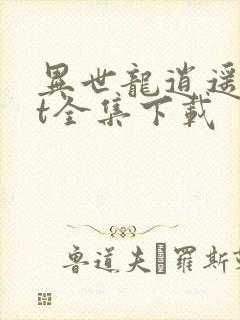 異世龍逍遥
t全集下載
鲁道夫·羅斯